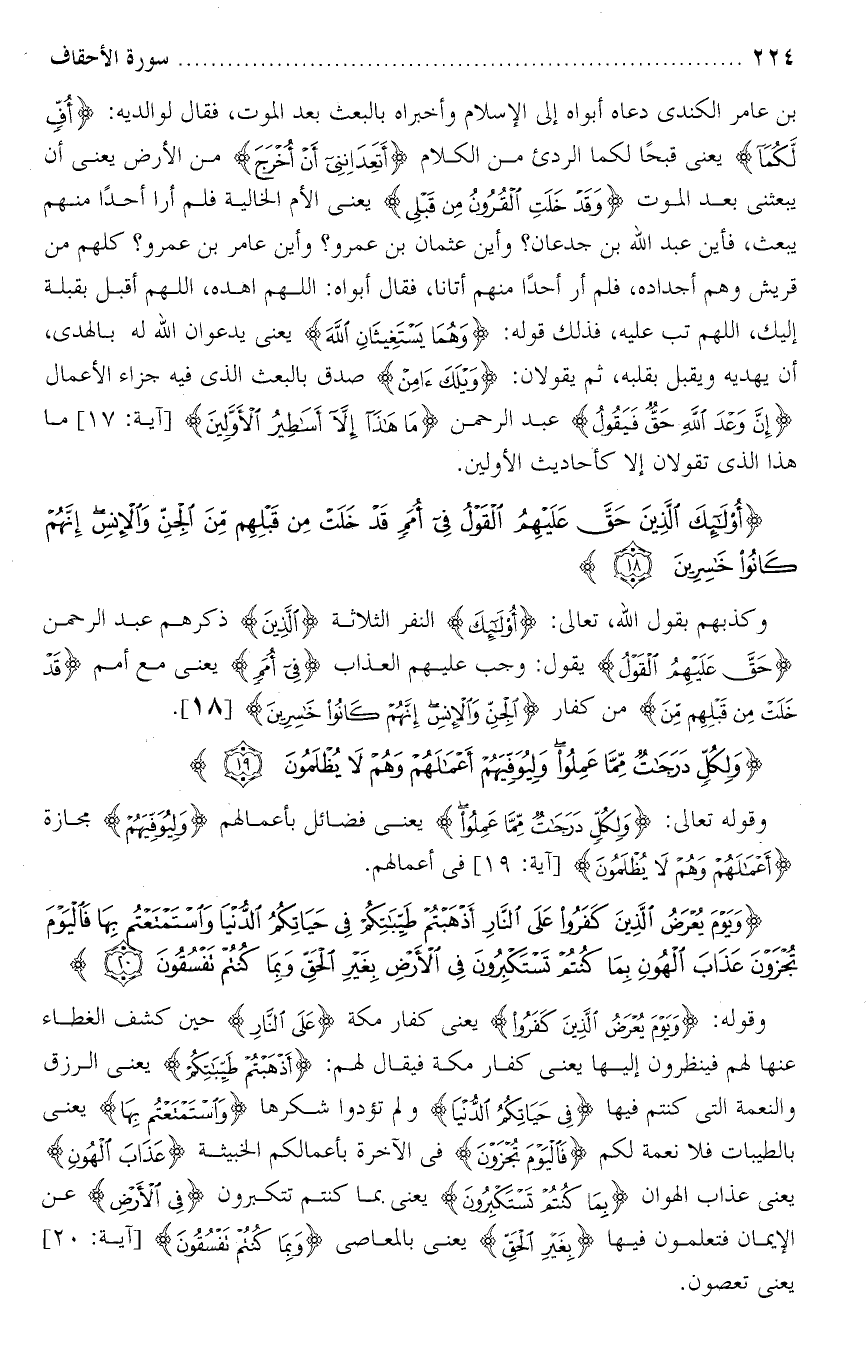 ٢٢٤ ................................................................ سورة الأحقاف
بن عامر الكندى دعاه أبواه إلى الإسلام وأخبراه بالبعث بعد الموت، فقال لوالديه: ﴿أُفٍّ
لَّكُمَآ﴾ يعنى قبحًا لكما الردئ من الكلام ﴿أَتَعِدَانِنِىٓ أَنْ أُخْرَجَ﴾ من الأرض يعنى أن
يبعثنى بعد الموت ﴿وَقَدْ خَلَتِ ٱلْقُرُونُ مِن قَبْلِى﴾ يعنى الأم الخالية فلم أرا أحدًا منهم
يبعث، فأين عبد الله بن جدعان؟ وأين عثمان بن عمرو؟ وأين عامر بن عمرو؟ كلهم من
قريش وهم أجداده، فلم أر أحدًا منهم أتانا، فقال أبواه: اللهم اهده، اللهم أقبل بقبلة
إليك، اللهم تب عليه، فذلك قوله: ﴿وَهُمَا يَسْتَغِيثَانِ ٱللَّهَ﴾ يعنى يدعوان الله له بالهدى،
أن يهديه ويقبل بقلبه، ثم يقولان: ﴿وَيْلَكَ ءَامِنْ﴾ صدق بالبعث الذى فيه جزاء الأعمال
﴿إِنَّ وَعْدَ ٱللَّهِ حَقٌّ فَيَقُولُ﴾ عبد الرحمن ﴿مَا هَٰذَآ إِلَّآ أَسَٰطِيرُ ٱلْأَوَّلِينَ﴾ [آية: ١٧] ما
هذا الذى تقولان إلا كأحاديث الأولين.
﴿أُو۟لَٰٓئِكَ ٱلَّذِينَ حَقَّ عَلَيْهِمُ ٱلْقَوْلُ فِىٓ أُمَمٍ قَدْ خَلَتْ مِن قَبْلِهِم مِّنَ ٱلْجِنِّ وَٱلْإِنسِ ۖ إِنَّهُمْ
كَانُوا۟ خَٰسِرِينَ ١٨ ﴾
وكذبهم بقول الله، تعالى: ﴿أُو۟لَٰٓئِكَ﴾ النفر الثلاثة ﴿ٱلَّذِينَ﴾ ذكرهم عبد الرحمن
﴿حَقَّ عَلَيْهِمُ ٱلْقَوْلُ﴾ يقول: وجب عليهم العذاب ﴿فِىٓ أُمَمٍ﴾ يعنى مع أمم ﴿قَدْ
خَلَتْ مِن قَبْلِهِم مِّنَ﴾ من كفار ﴿ٱلْجِنِّ وَٱلْإِنسِ ۖ إِنَّهُمْ كَانُوا۟ خَٰسِرِينَ﴾ [١٨].
﴿وَلِكُلٍّ دَرَجَٰتٌ مِّمَّا عَمِلُوا۟ ۖ وَلِيُوَفِّيَهُمْ أَعْمَٰلَهُمْ وَهُمْ لَا يُظْلَمُونَ ١٩ ﴾
وقوله تعالى: ﴿وَلِكُلٍّ دَرَجَٰتٌ مِّمَّا عَمِلُوا۟ ۖ﴾ يعنى فضائل بأعمالهم ﴿وَلِيُوَفِّيَهُمْ﴾ مجازة
﴿أَعْمَٰلَهُمْ وَهُمْ لَا يُظْلَمُونَ﴾ [آية: ١٩] فى أعمالهم.
﴿وَيَوْمَ يُعْرَضُ ٱلَّذِينَ كَفَرُوا۟ عَلَى ٱلنَّارِ أَذْهَبْتُمْ طَيِّبَٰتِكُمْ فِى حَيَاتِكُمُ ٱلدُّنْيَا وَٱسْتَمْتَعْتُم بِهَا فَٱلْيَوْمَ
تُجْزَوْنَ عَذَابَ ٱلْهُونِ بِمَا كُنتُمْ تَسْتَكْبِرُونَ فِى ٱلْأَرْضِ بِغَيْرِ ٱلْحَقِّ وَبِمَا كُنتُمْ تَفْسُقُونَ ٢٠ ﴾
وقوله: ﴿وَيَوْمَ يُعْرَضُ ٱلَّذِينَ كَفَرُوا۟﴾ يعنى كفار مكة ﴿عَلَى ٱلنَّارِ﴾ حين كشف الغطاء
عنها لهم فينظرون إليها يعنى كفار مكة فيقال لهم: ﴿أَذْهَبْتُمْ طَيِّبَٰتِكُمْ﴾ يعنى الرزق
والنعمة التى كنتم فيها ﴿فِى حَيَاتِكُمُ ٱلدُّنْيَا﴾ ولم تؤدوا شكرها ﴿وَٱسْتَمْتَعْتُم بِهَا﴾ يعنى
بالطيبات فلا نعمة لكم ﴿فَٱلْيَوْمَ تُجْزَوْنَ﴾ فى الآخرة بأعمالكم الخبيثة ﴿عَذَابَ ٱلْهُونِ﴾
يعنى عذاب الهوان ﴿بِمَا كُنتُمْ تَسْتَكْبِرُونَ﴾ يعنى بما كنتم تتكبرون ﴿فِى ٱلْأَرْضِ﴾ عن
الإيمان فتعلمون فيها ﴿بِغَيْرِ ٱلْحَقِّ﴾ يعنى بالمعاصى ﴿وَبِمَا كُنتُمْ تَفْسُقُونَ﴾ [آية: ٢٠]
يعنى تعصون.